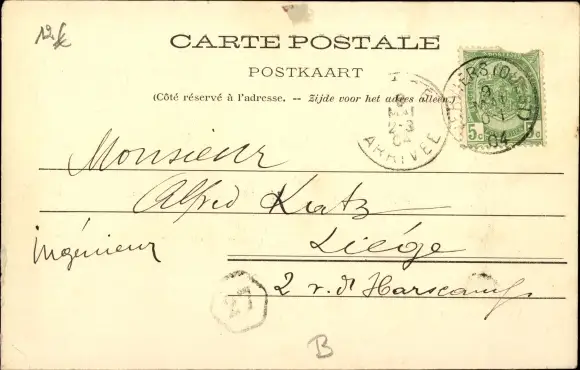 12.
CARTE POSTALE
POSTKAART
(Côté réservé à l'adresse. -- Zijde voor het adres alleen.)
5c 5c
9
MAI
04
ARRIVÉE
Monsieur
Alfred Kratz
ingénieur
Liége
2 r. d' Harscamp
B